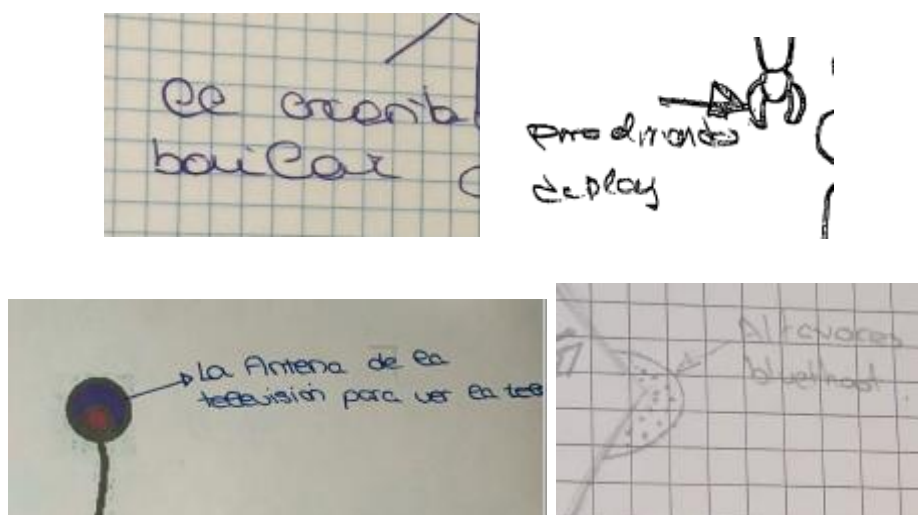 le encanta
bailar
para el mando
de play
La Antena de la
televisión para ver la tele
Altavoces
bluethoot